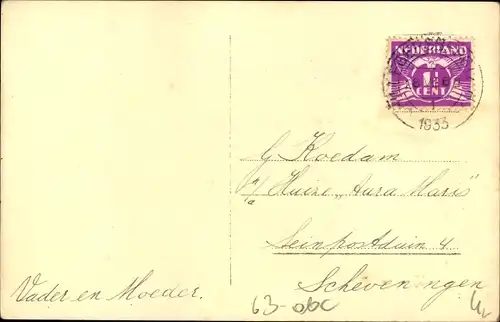 NEDERLAND
1½
CENT
1933
G. Koedam
p/a Huize „Aura Maris"
Seinpostduin 4
Scheveningen
Vader en Moeder.
63-abc